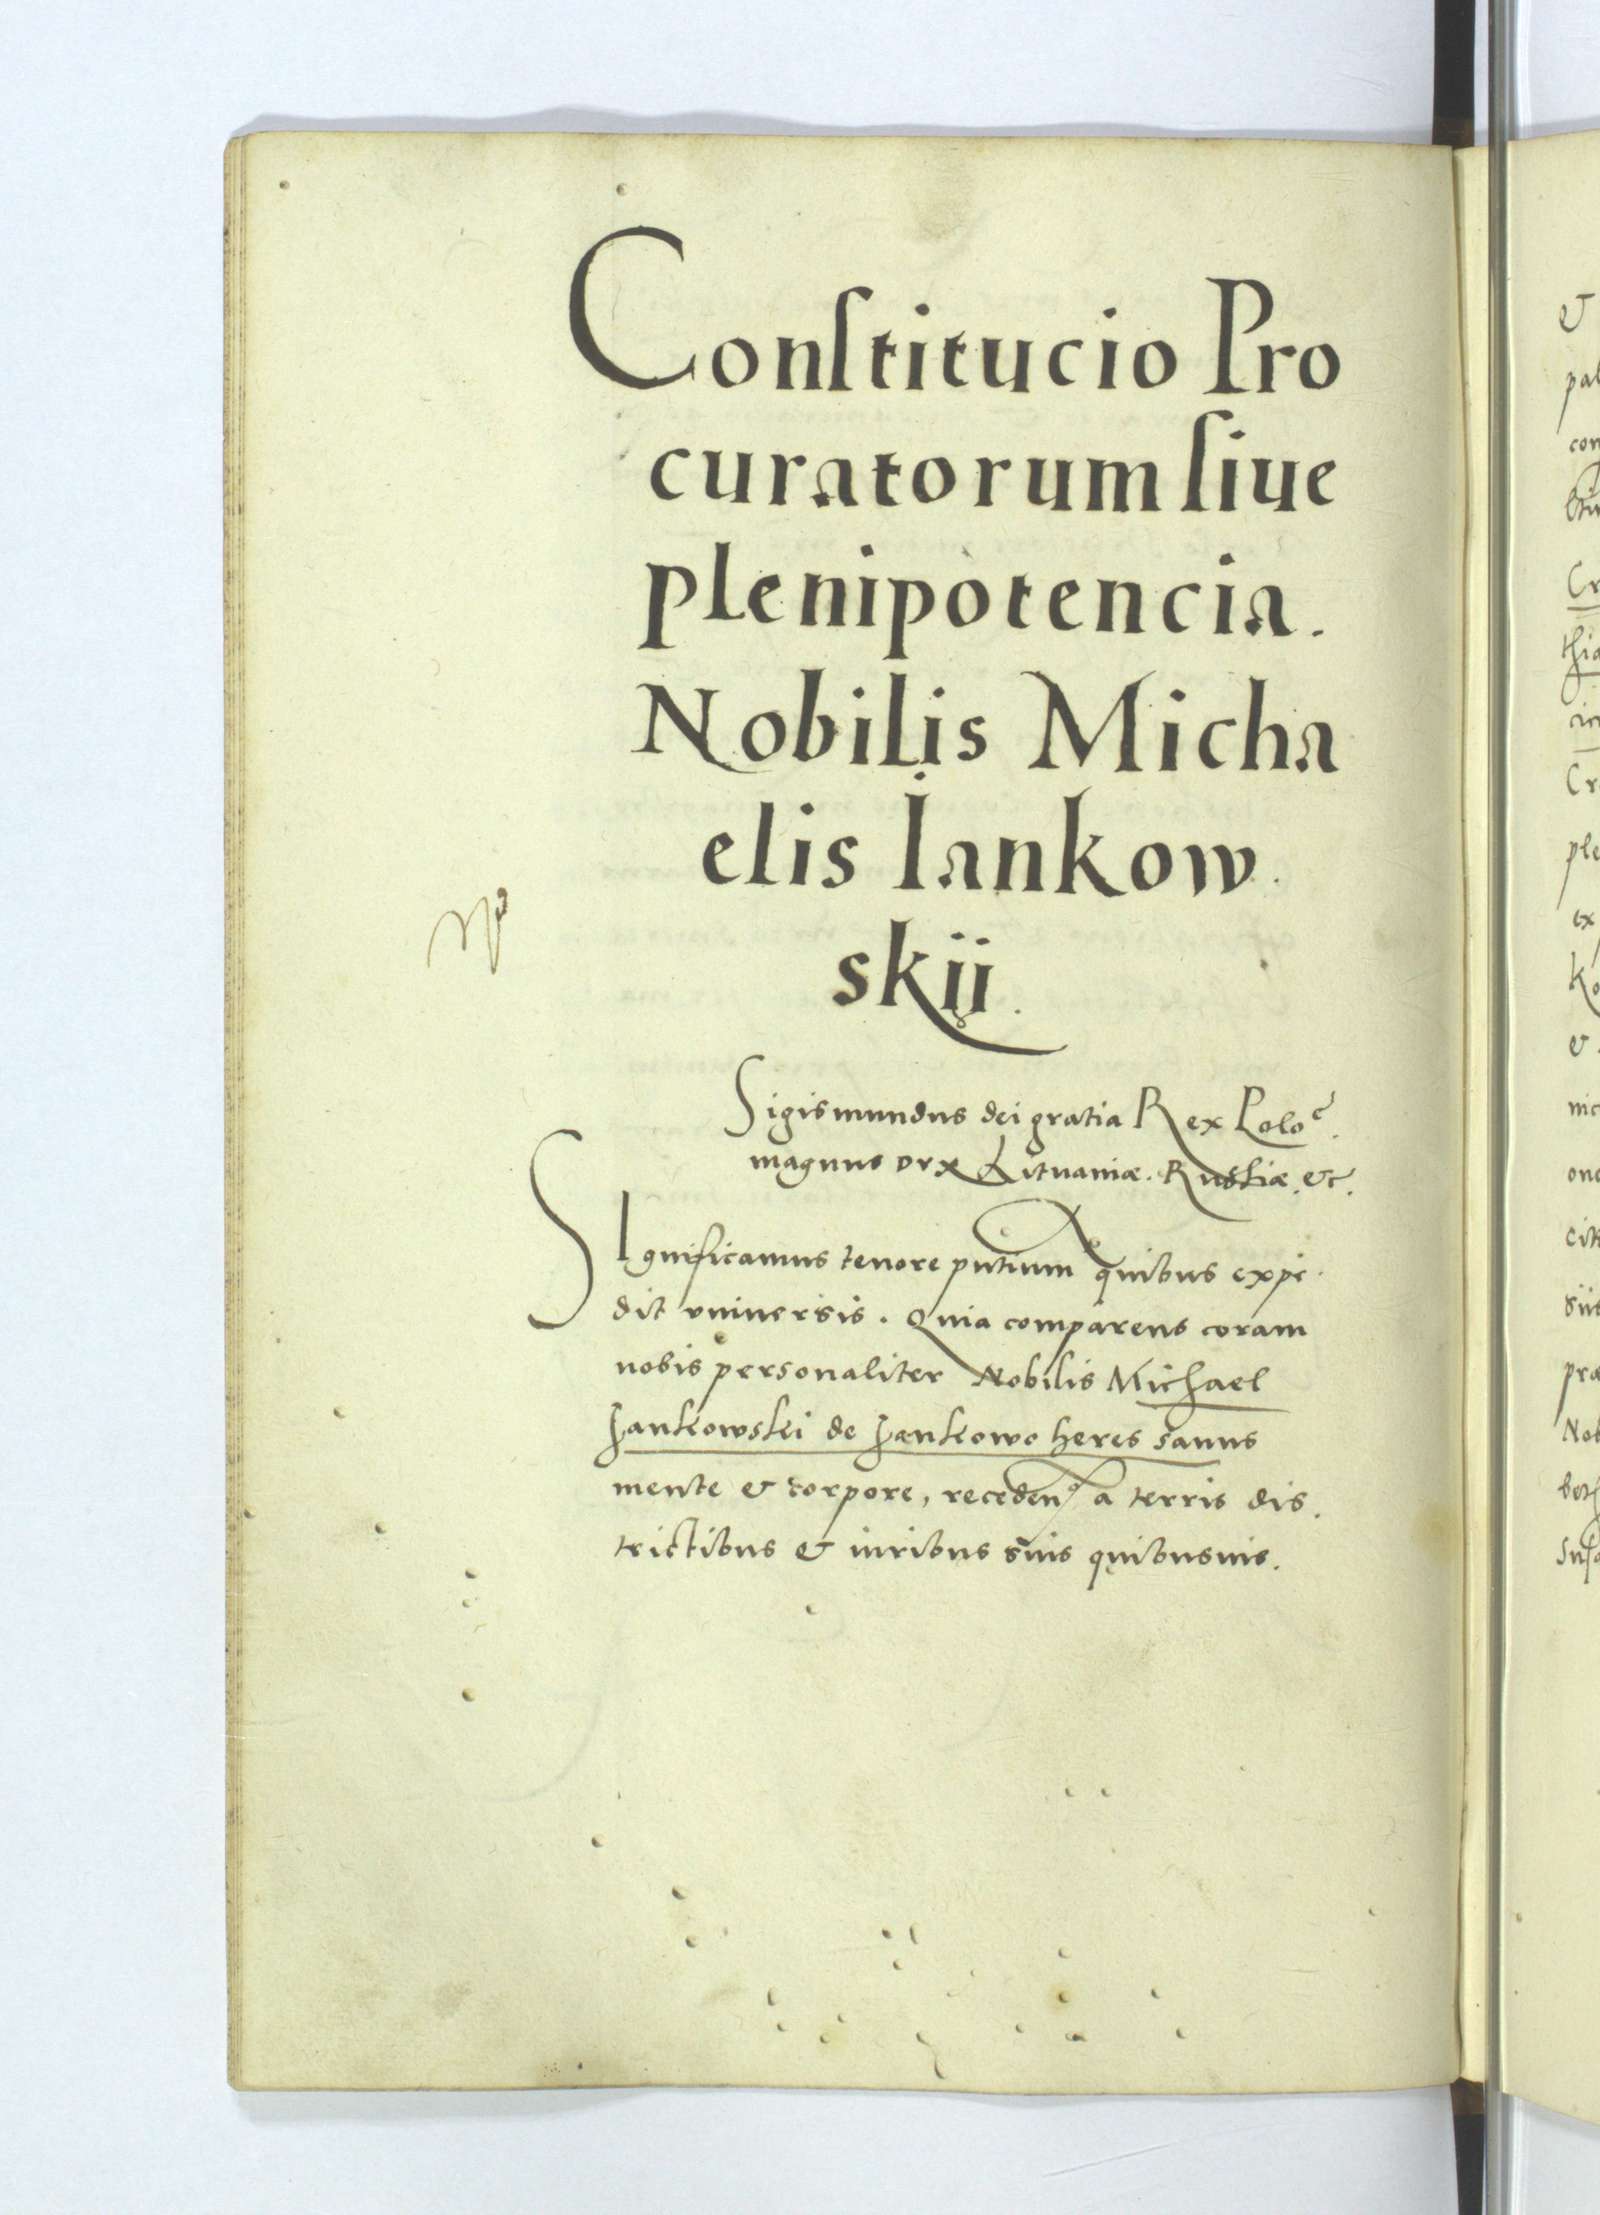 Conſtitucio Pro
curatorum ſiue
plenipotencia.
Nobilis Micha
elis Iankow
skii.
Sigismundus dei gratia Rex Poloᶜ.
magnus dux Lituaniæ. Russiæ. etc.
SIgnificamus tenore pntium quibus expe
dit vniuersis. Quia comparens coram
nobis personaliter Nobilis Michael
Jankowski de Jankowo heres sanus
mente & corpore, receden a terris dis.
trictibus & iuribus suis quibusuis.
&
pal
con
Cr
thia
Cr
ple
ex
Ko
&
cit
præ
Nob